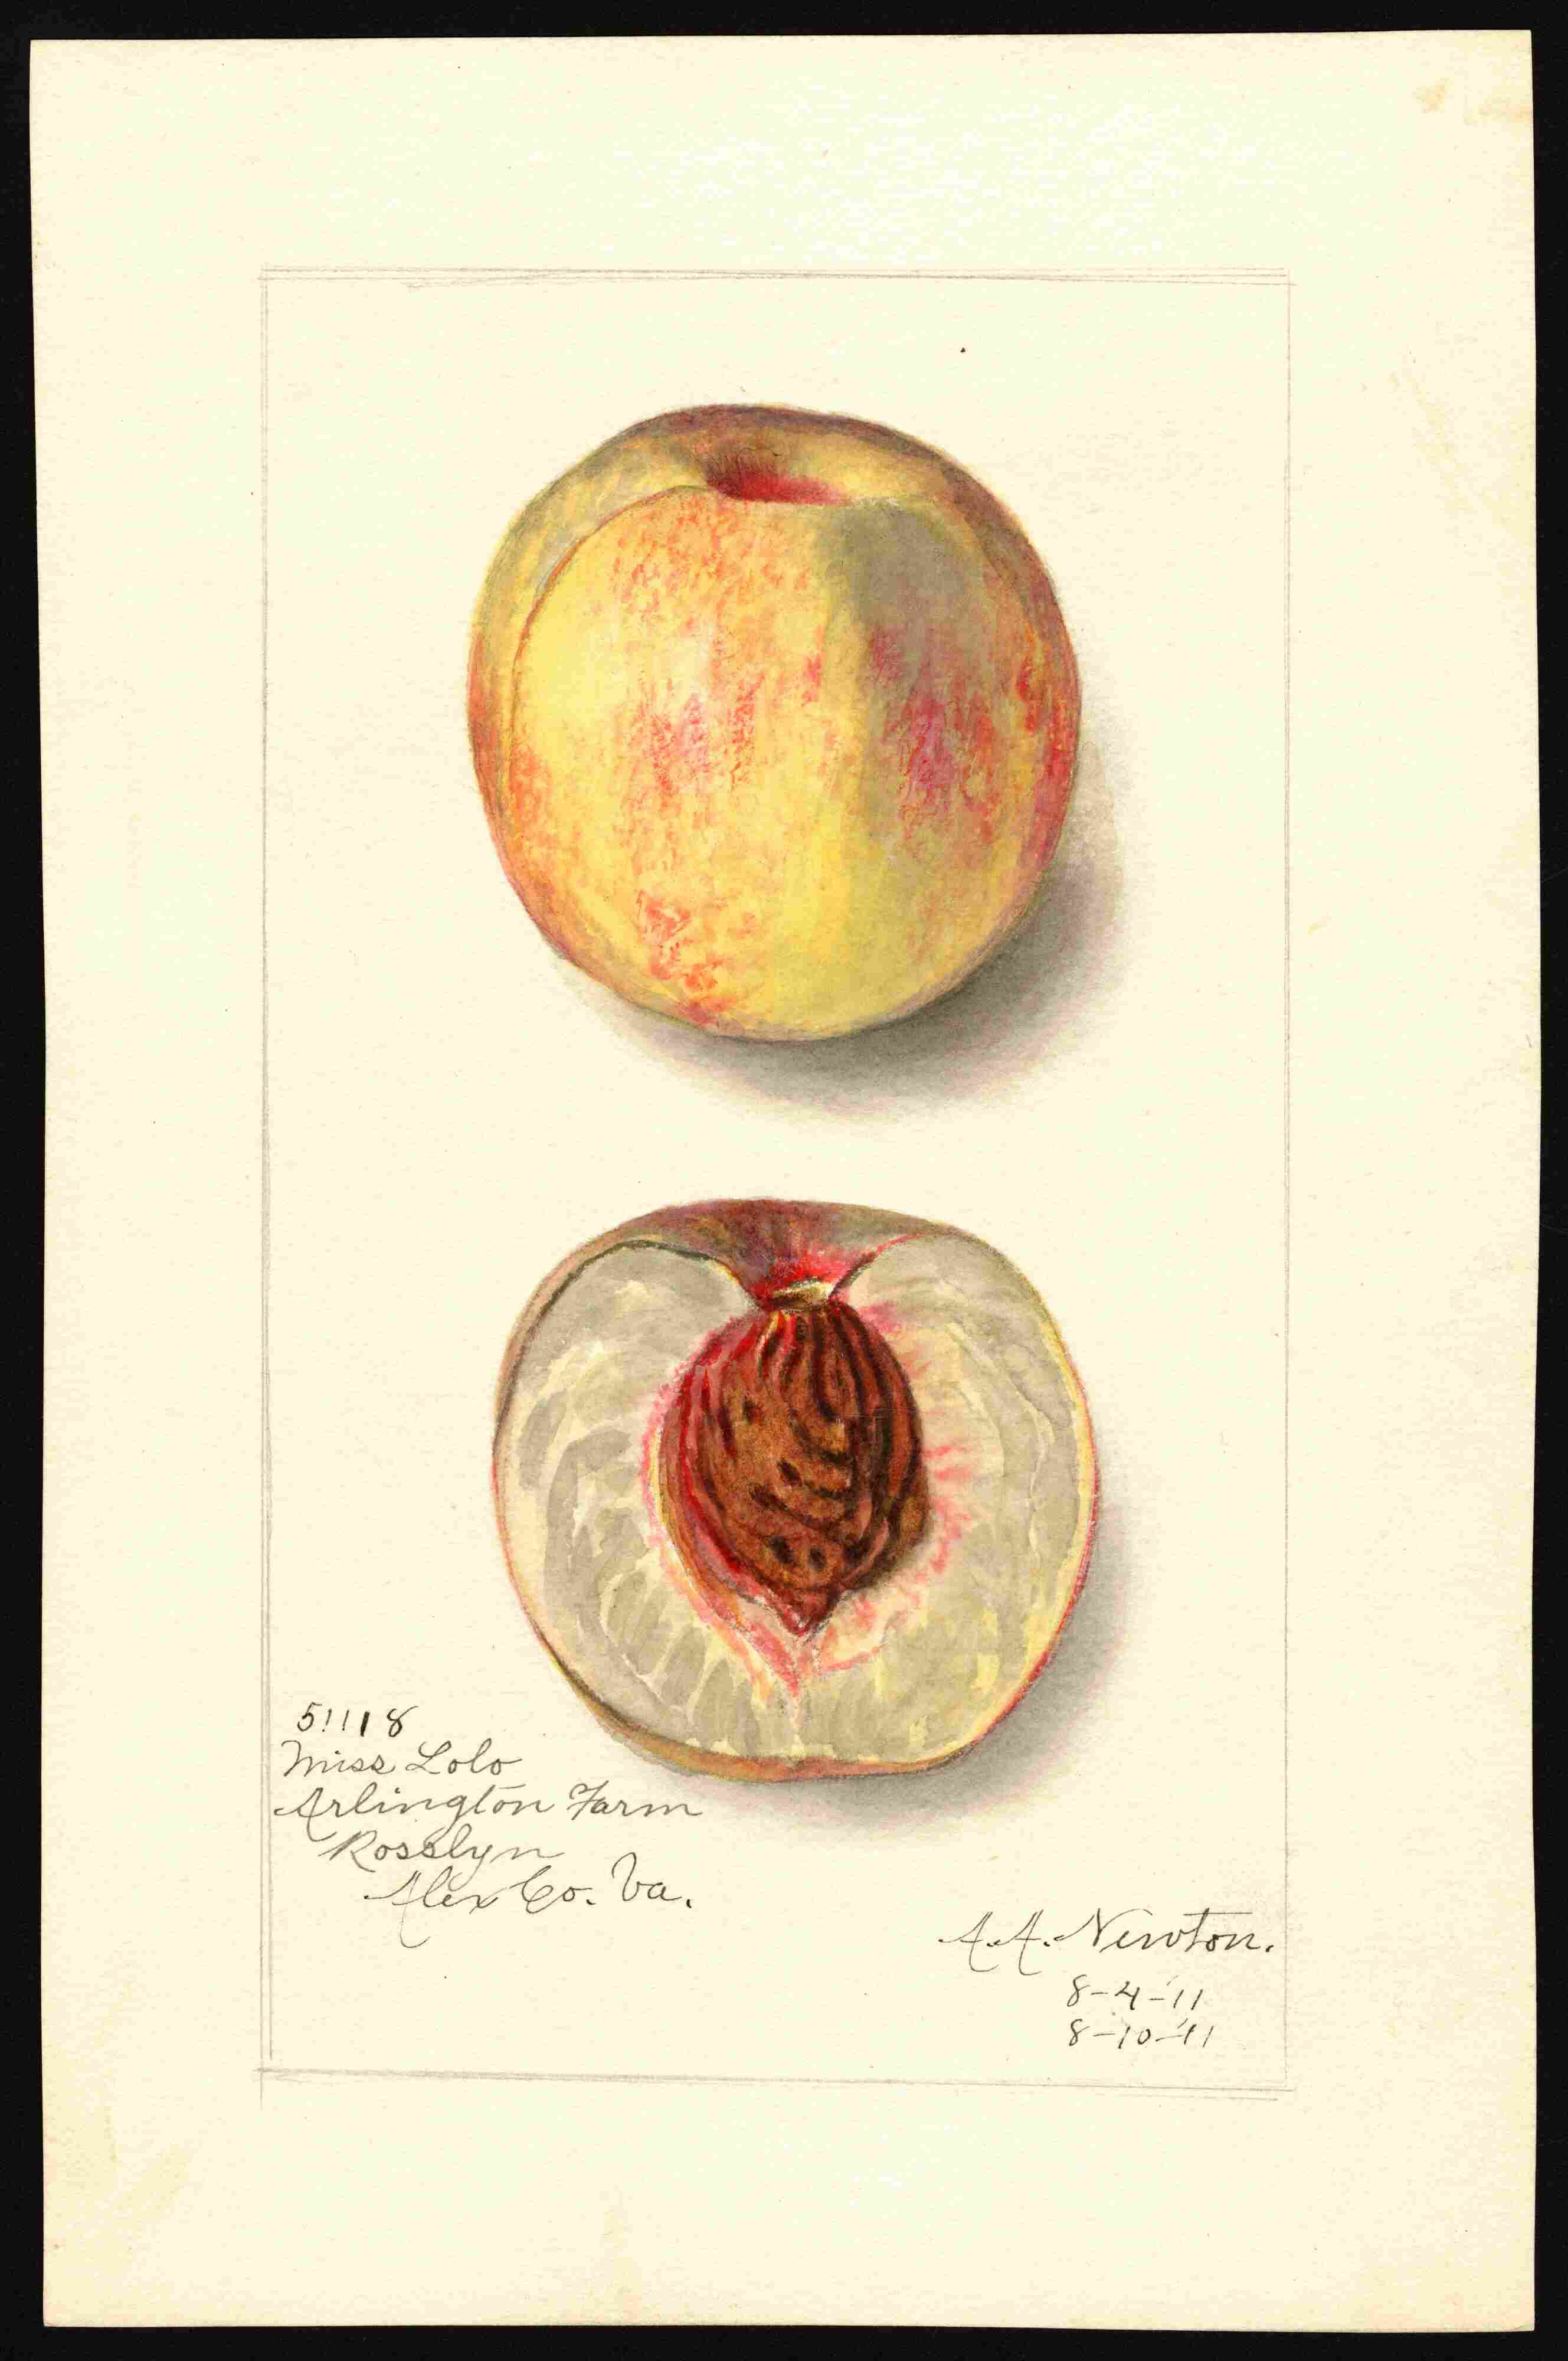 51118
Miss Lolo
Arlington Farm
Rosslyn
Alex Co. Va.
A.A. Newton.
8-4-'11
8-10-'11